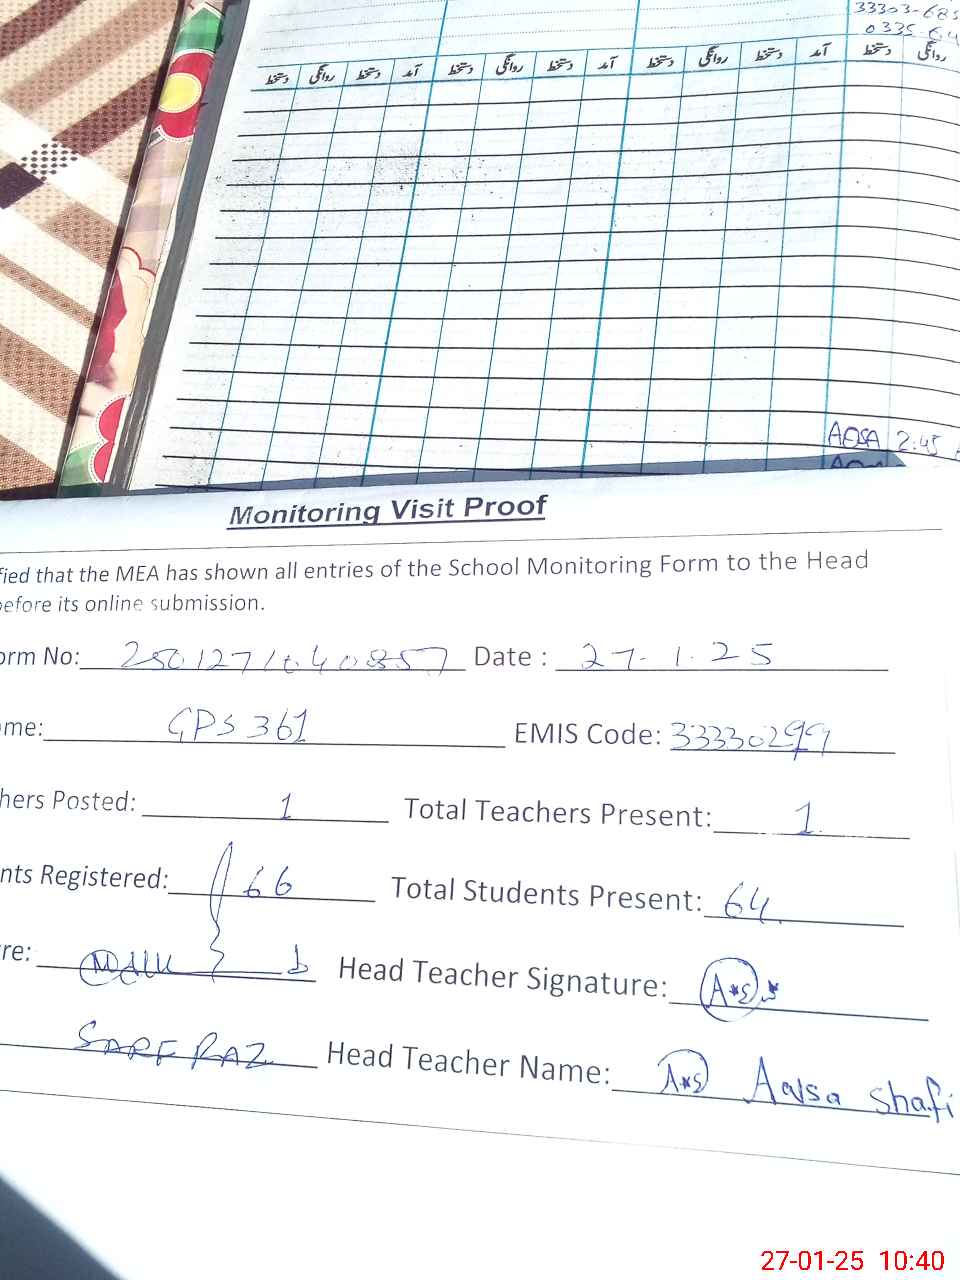 33303-685
0335-64
دستخط روانگی دستخط آمد دستخط روانگی دستخط آمد دستخط روانگی دستخط آمد دستخط روانگی
AQSA 2:45
Monitoring Visit Proof
fied that the MEA has shown all entries of the School Monitoring Form to the Head
before its online submission.
orm No: 2501271040857 Date : 27-1-25
me: GPS 361 EMIS Code: 33330299
hers Posted: 1 Total Teachers Present: 1
nts Registered: 66 Total Students Present: 64
re: Head Teacher Signature: A*S
SARFRAZ Head Teacher Name: A*S Aqsa Shafi
27-01-25 10:40